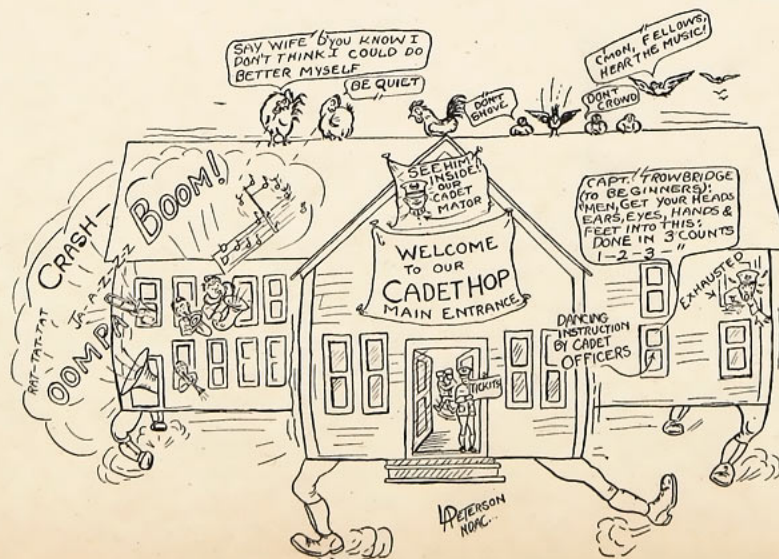 SAY WIFE D'YOU KNOW I
DON'T THINK I COULD DO
BETTER MYSELF
BE QUIET
DON'T
SHOVE
C'MON, FELLOWS,
HEAR THE MUSIC!
DON'T
CROWD
CRASH—
BOOM!
JA-A-ZZZZ
RAT-TAT-TAT
OOMPA
SEE HIM
INSIDE!
OUR
CADET
MATOR
WELCOME
TO OUR
CADET HOP
MAIN ENTRANCE
CAPT. TROWBRIDGE
(TO BEGINNERS):
"MEN, GET YOUR HEADS
EARS, EYES, HANDS &
FEET INTO THIS:
DONE IN 3 COUNTS
1-2-3-"
EXHAUSTED
DANCING
INSTRUCTION
BY CADET
OFFICERS
TICKITS
LAPETERSON
NDAC...